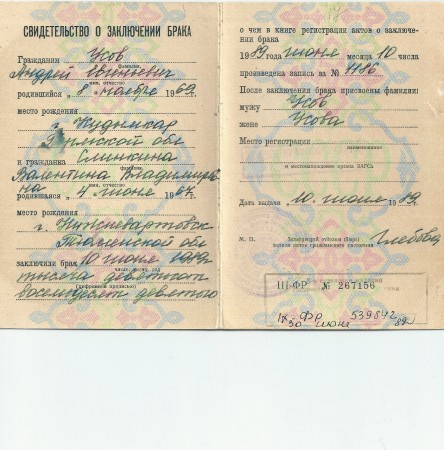 СВИДЕТЕЛЬСТВО О ЗАКЛЮЧЕНИИ БРАКА
Гражданин Усов
фамилия,
Андрей Евгеньевич
имя, отчество
родившийся „8" ноября 1969.
место рождения
г. Кудымкар
Пермской обл
и гражданка Слинкина
фамилия,
Валентина Владимиров
на
имя, отчество
родившаяся „4" июня 1967.
место рождения
г. Нижневартовск
Тюменской обл
заключили брак 10 июня 1989
число, месяц, год
тысяча девятьсот
(цифрами и прописью)
восемьдесят девятого
о чем в книге регистрации актов о заключе-
нии брака
1989 года июня месяца 10 числа
произведена запись за № 1186
После заключения брака присвоены фамилии:
мужу Усов
жене Усова
Место регистрации
наименование
и местонахождение органа ЗАГСа
Дата выдачи „10" июня 1989.
М. П. Заведующий отделом (бюро)
записи актов гражданского состояния
Глебова
III-ФР № 267156
IX-ФР 539642
30 июня 89г